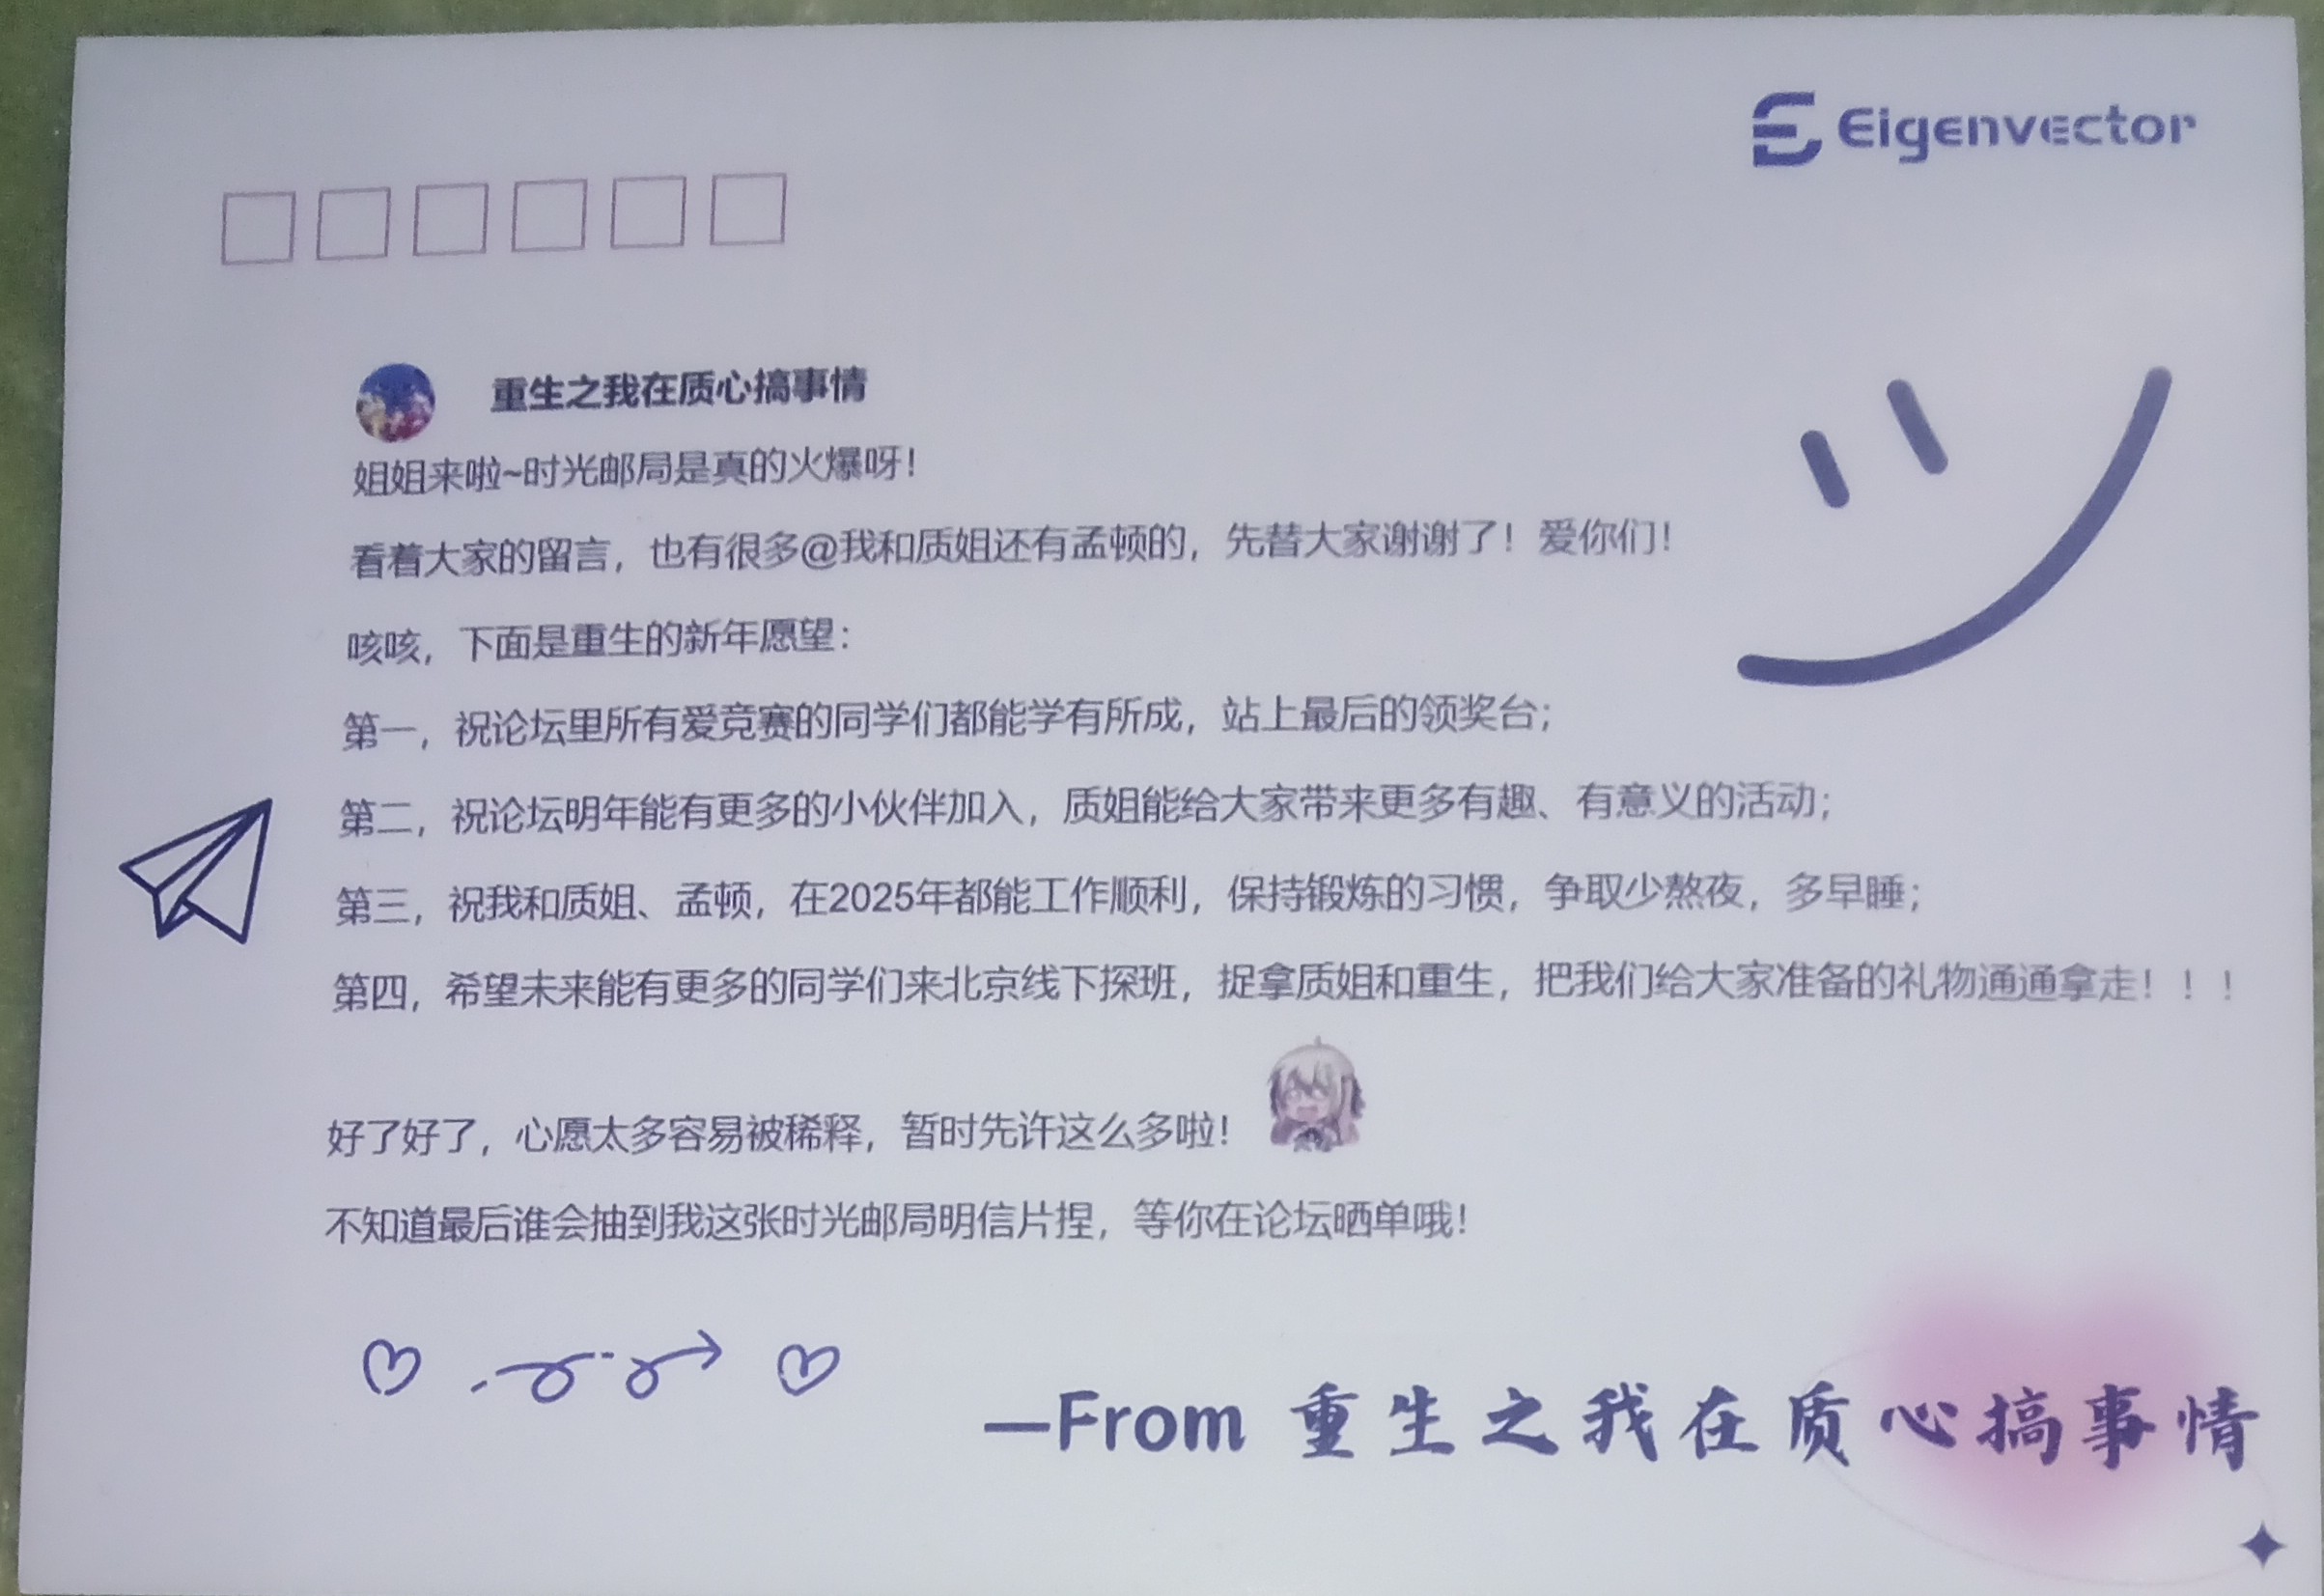 Eigenvector
重生之我在质心搞事情
姐姐来啦~时光邮局是真的火爆呀！
看着大家的留言，也有很多@我和质姐还有孟顿的，先替大家谢谢了！爱你们！
咳咳，下面是重生的新年愿望：
第一，祝论坛里所有爱竞赛的同学们都能学有所成，站上最后的领奖台；
第二，祝论坛明年能有更多的小伙伴加入，质姐能给大家带来更多有趣、有意义的活动；
第三，祝我和质姐、孟顿，在2025年都能工作顺利，保持锻炼的习惯，争取少熬夜，多早睡；
第四，希望未来能有更多的同学们来北京线下探班，捉拿质姐和重生，把我们给大家准备的礼物通通拿走！！！
好了好了，心愿太多容易被稀释，暂时先许这么多啦！
不知道最后谁会抽到我这张时光邮局明信片捏，等你在论坛晒单哦！
—From 重生之我在质心搞事情